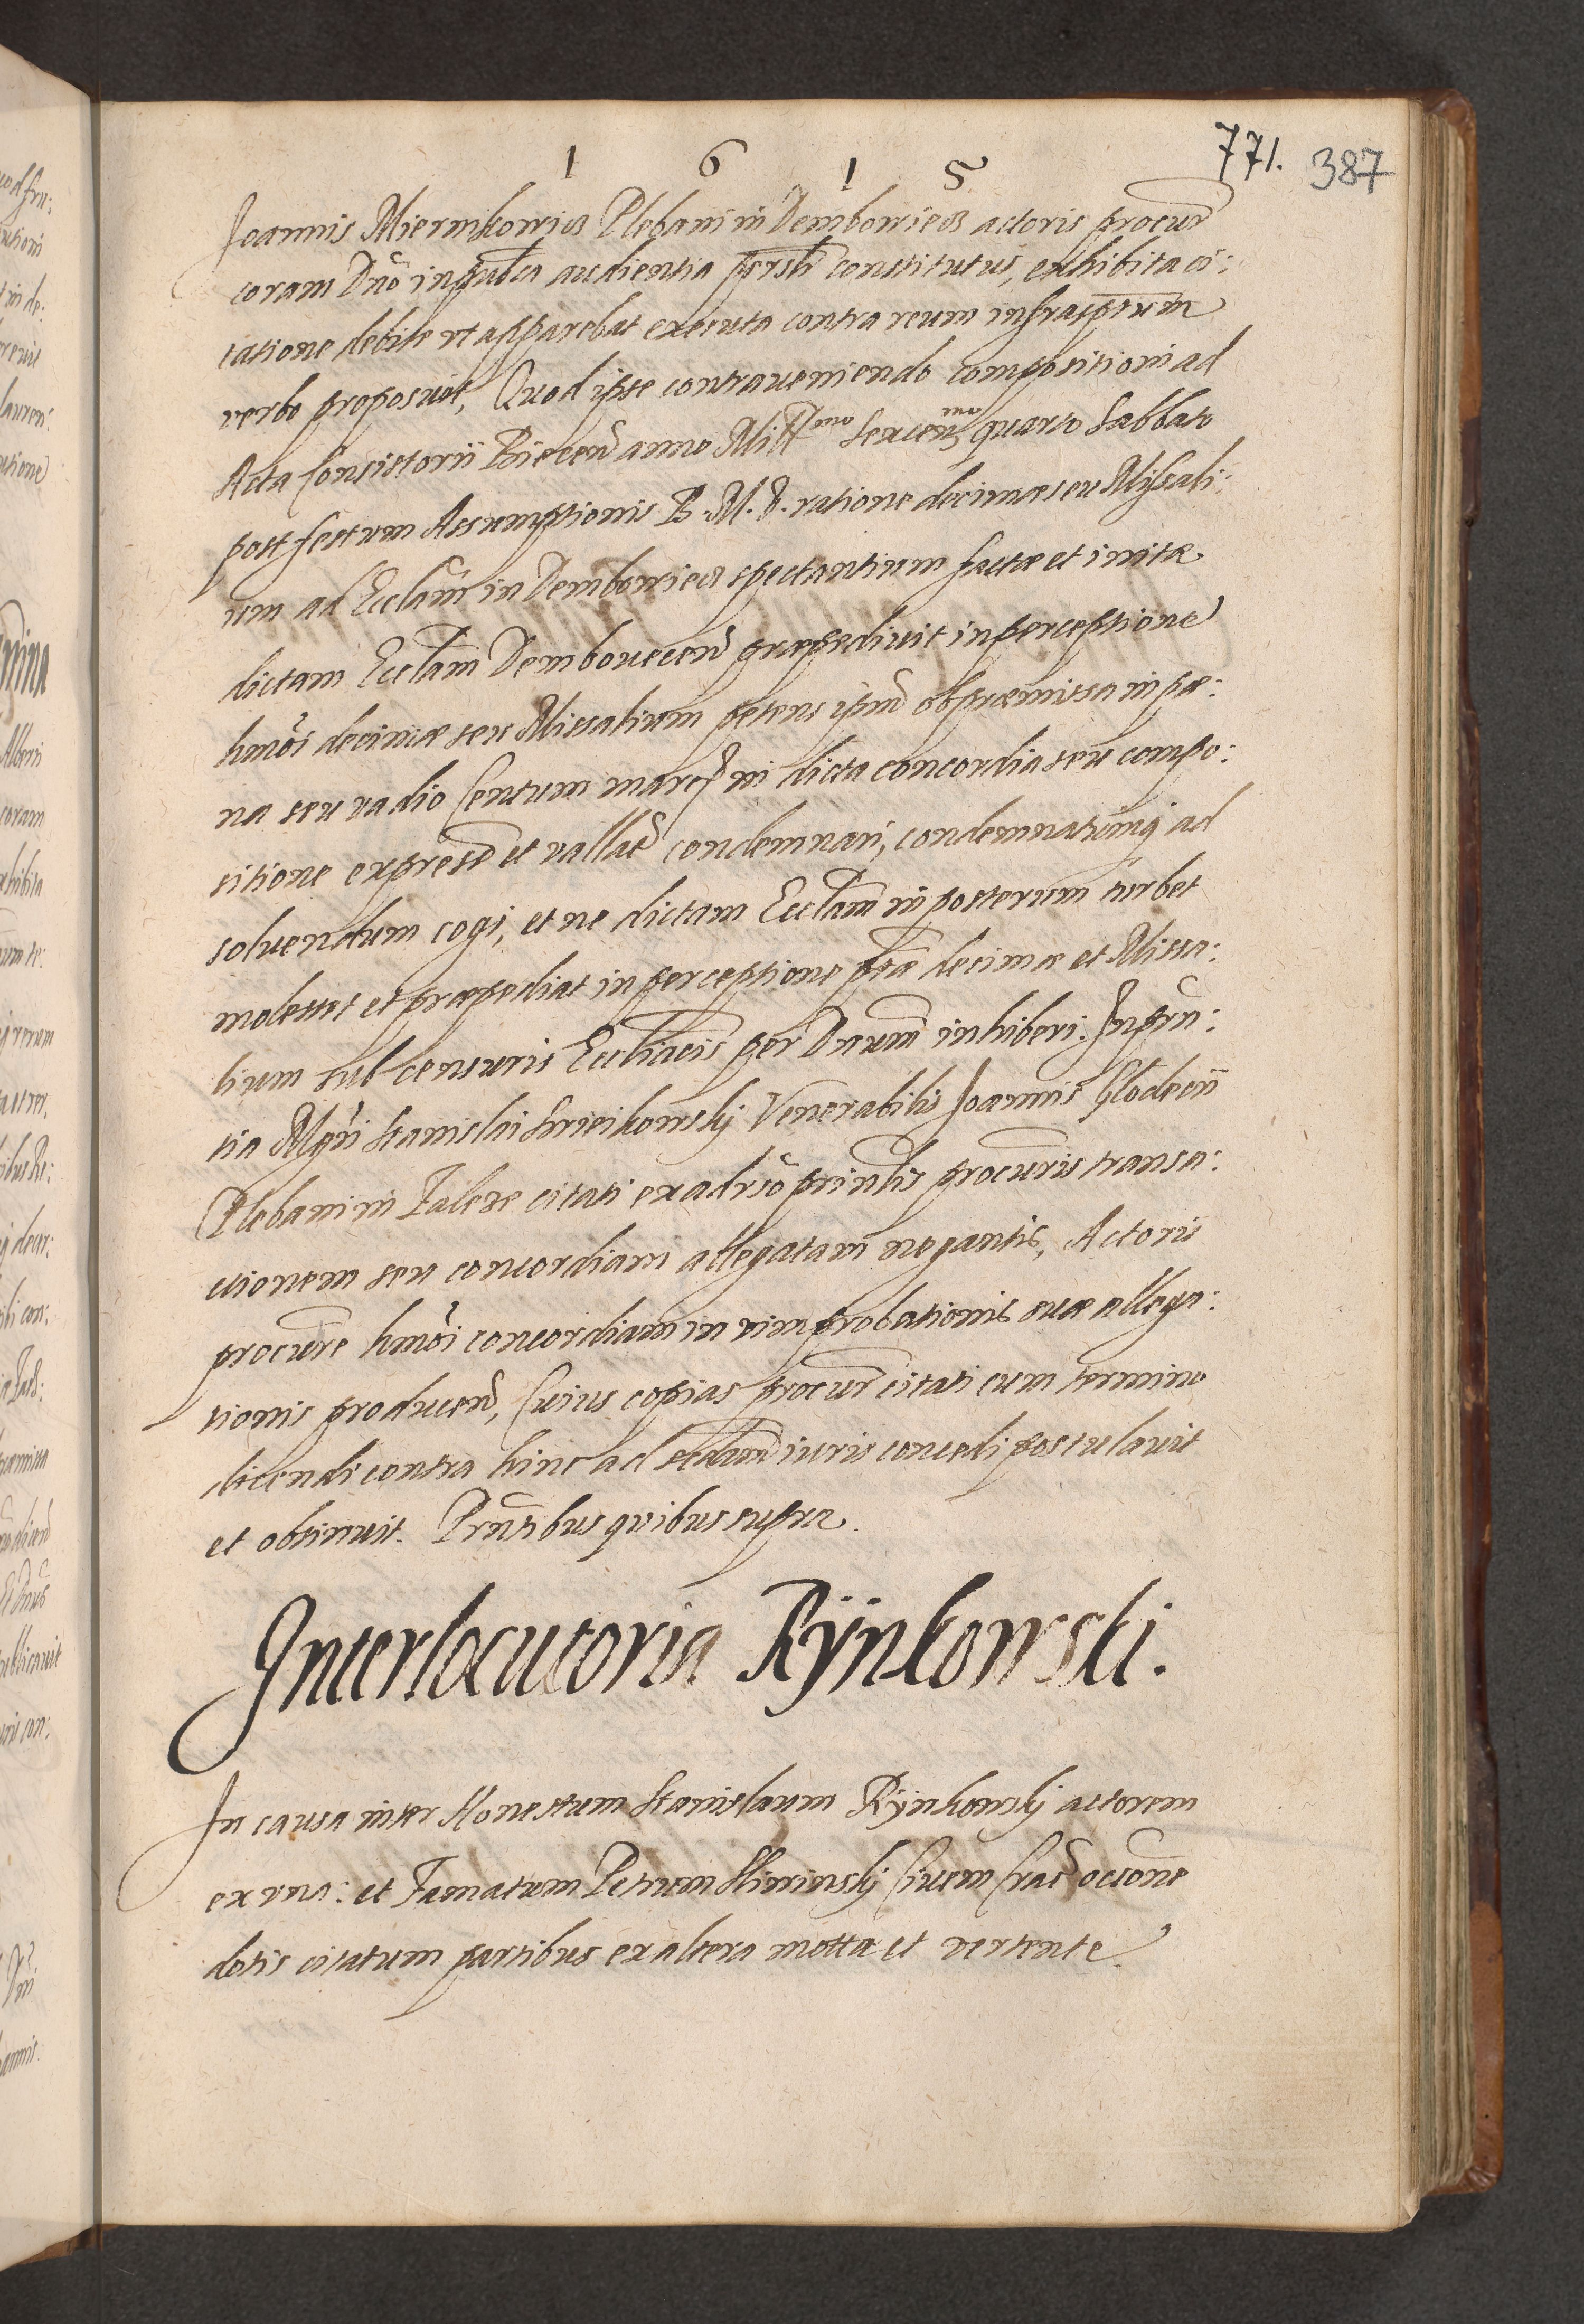 1 6 1 5
771. 387
Joannis Miernikowicz Plebani in Dembowiecz actoris procur̃
coram Dño in publca audientia psrlr constitutus, exhibita ci:
tatione debite vt apparebat executa contra reum infrasptum
verbo proposuit, Quod ipse contraueniendo compositioni ad
Acta Consistorii Biecen̄ anno Mill̃mo Sexcen̄mo quarto Sabbato
post festum Assumptionis B. M. V. ratione decimae seu Missali:
um ad Ecclām in Dembowiecz spectantium factae et initae
dictam Ecclām Dembouecen̄ praepediuit in perceptione
hmōi decimae seu Missalium petens ipm̄ ob praemissa in pae:
na seu vadio Centum marcȩ in dicta concordia seu compo:
sitione express̄ et vallat̄ condemnari, condemnatumq ad
soluendum cogi, et ne dictam Ecclām in posterum turbet
molestet et praepediat in perceptione ptāe decimae et Missa:
lium sub censuris Eccliacis per Dnum inhiberi. In pn̄:
tia Mgri Stanislai Krzeikowskj Venerabilis Joannis Glodecii
Plebani in Zaleze citati ex adrsō prinlis procuris transa:
ctionem seu concordiam allegatam negantis, Actoris
procure hmōi concordiam in vim probationis suae allega:
tionis producen̄, Cuius copias procur̃ citati cum termino
dicendi contra hinc ad scdam iuris concedi postulauit
et obtinuit. Prn̄tibus quibus supra.
Interlocutoria Rÿnkowski.
In causa inter Honestum Stanislaum Rÿnkowskj actorem
ex vna: et Famatum Petrum Sliwinskj Ciuem Crac̄ occōne
dotis citatum partibus ex altera motta et vertente.